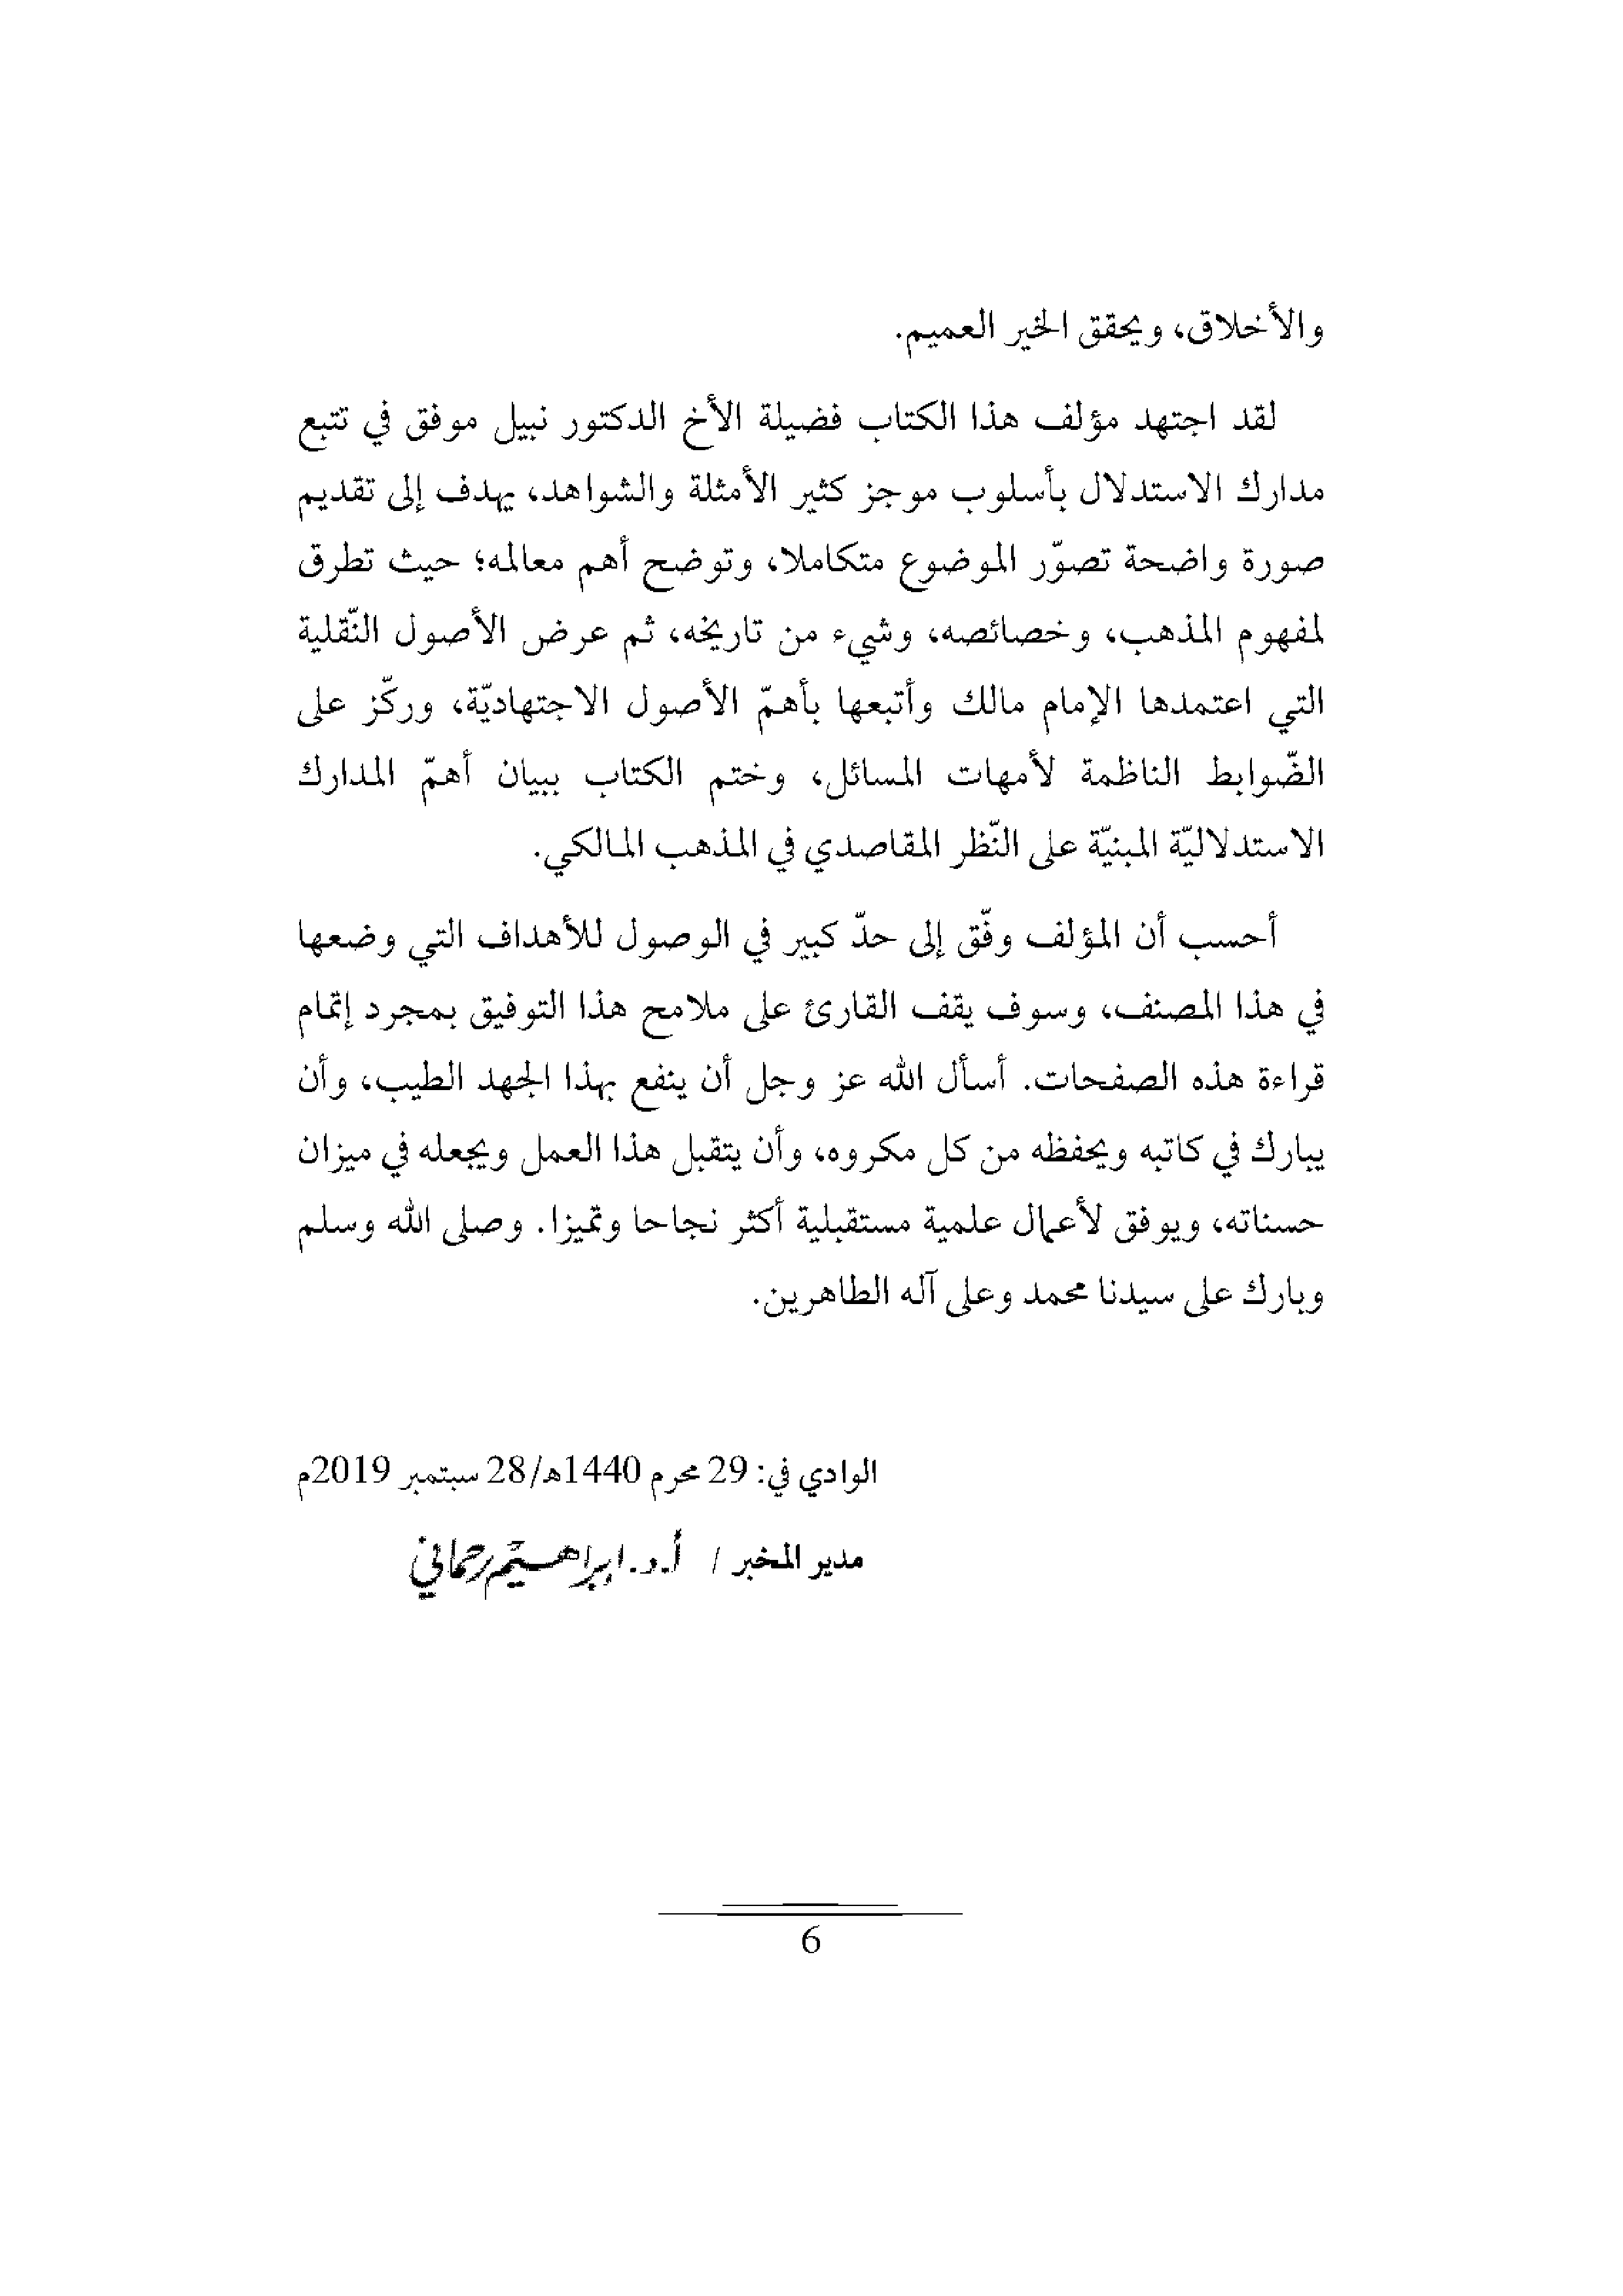 والأخلاق، ويحقق الخير العميم.
لقد اجتهد مؤلف هذا الكتاب فضيلة الأخ الدكتور نبيل موفق في تتبع
مدارك الاستدلال بأسلوب موجز كثير الأمثلة والشواهد، يهدف إلى تقديم
صورة واضحة تصوّر الموضوع متكاملا، وتوضح أهم معالمه؛ حيث تطرق
لمفهوم المذهب، وخصائصه، وشيء من تاريخه، ثم عرض الأصول النّقلية
التي اعتمدها الإمام مالك وأتبعها بأهمّ الأصول الاجتهاديّة، وركّز على
الضّوابط الناظمة لأمهات المسائل، وختم الكتاب ببيان أهمّ المدارك
الاستدلاليّة المبنيّة على النّظر المقاصدي في المذهب المالكي.
أحسب أن المؤلف وفّق إلى حدّ كبير في الوصول للأهداف التي وضعها
في هذا المصنف، وسوف يقف القارئ على ملامح هذا التوفيق بمجرد إتمام
قراءة هذه الصفحات. أسأل الله عز وجل أن ينفع بهذا الجهد الطيب، وأن
يبارك في كاتبه ويحفظه من كل مكروه، وأن يتقبل هذا العمل ويجعله في ميزان
حسناته، ويوفق لأعمال علمية مستقبلية أكثر نجاحا وتميزا. وصلى الله وسلم
وبارك على سيدنا محمد وعلى آله الطاهرين.
الوادي في: 29 محرم 1440هـ/28 سبتمبر 2019م
مدير المخبر / أ.د. إبراهيم رحماني
6